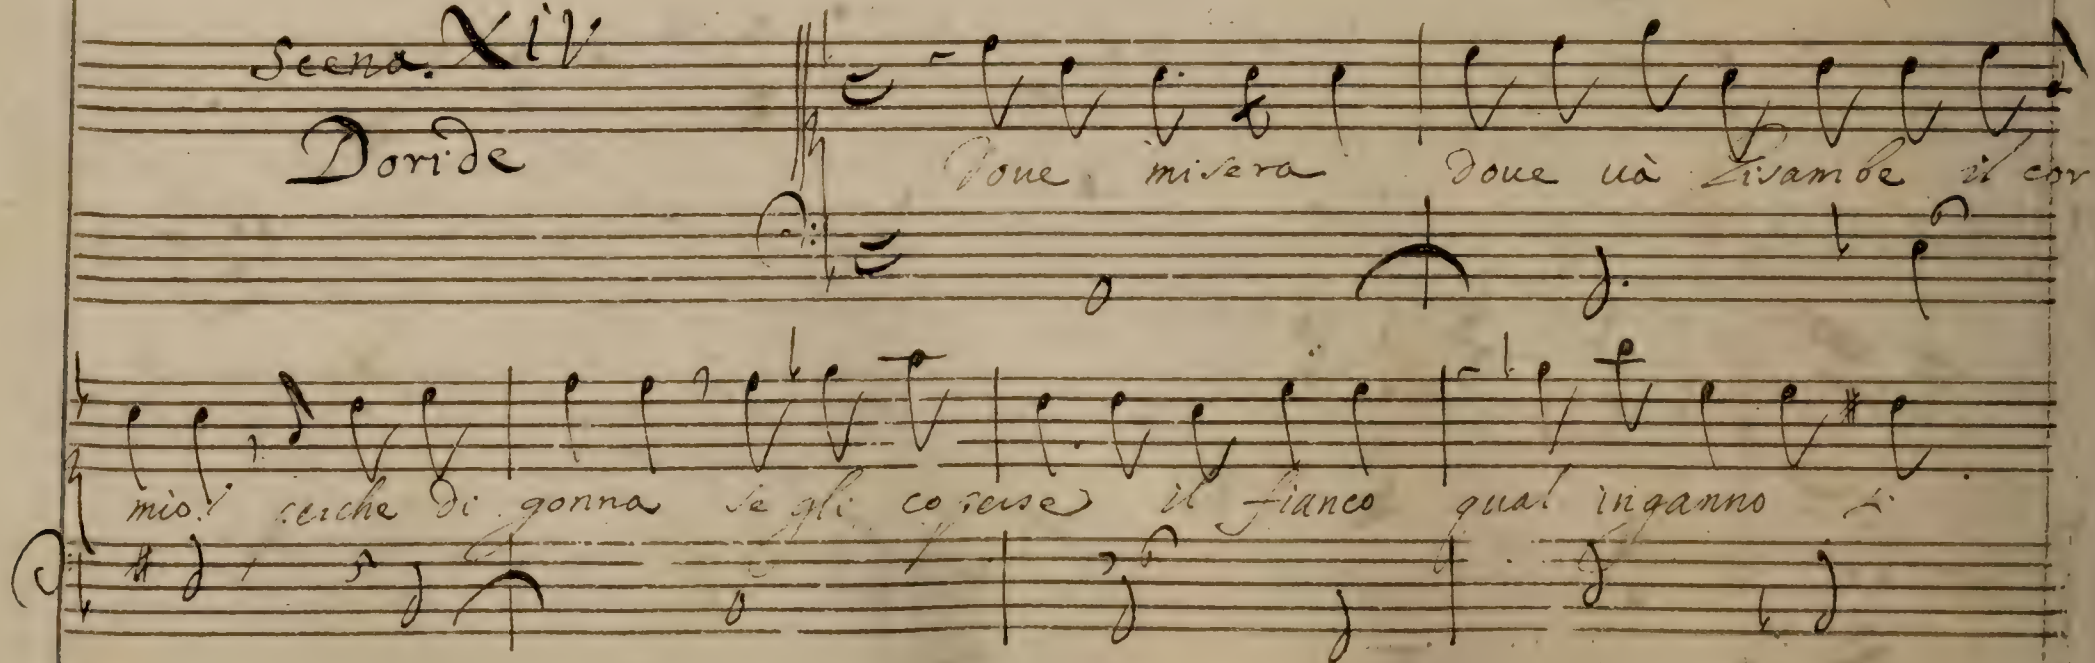 Scena. XIV
Doride
Doue misera doue uà Lisambe il cor
mio! cerche di gonna se gli coperse il fianco qual inganno